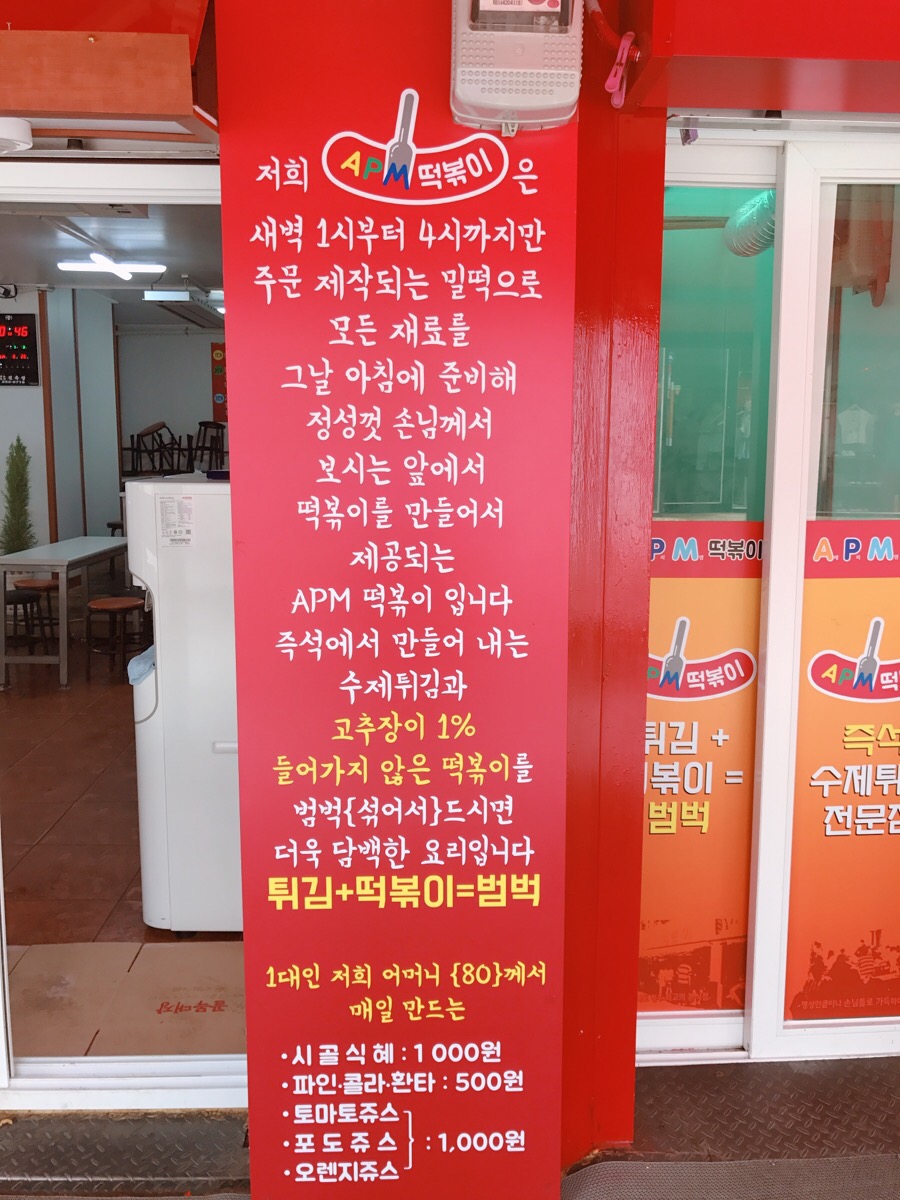 저희 APM 떡볶이 은
새벽 1시부터 4시까지만
주문 제작되는 밀떡으로
모든 재료를
그날 아침에 준비해
정성껏 손님께서
보시는 앞에서
떡볶이를 만들어서
제공되는
APM 떡볶이 입니다
즉석에서 만들어 내는
수제튀김과
고추장이 1%
들어가지 않은 떡볶이를
범벅{섞어서}드시면
더욱 담백한 요리입니다
튀김+떡볶이=범벅
1대인 저희 어머니 {80}께서
매일 만드는
·시골식혜 : 1000원
·파인·콜라·환타 : 500원
·토마토쥬스
·포도쥬스 : 1,000원
·오렌지쥬스
P M 떡볶이
PM 떡볶이
튀김 +
볶이 =
범벅
A P M
APM 떡
즉석
수제튀
전문점
46